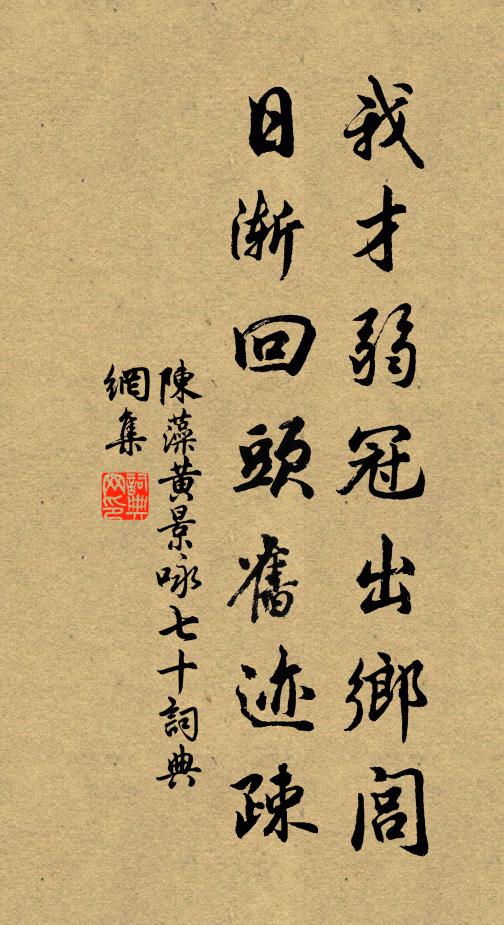 我才弱冠出鄉閭
日漸回頭舊迹疎
陳藻黃景詠七十詞典
網集
詞典網印